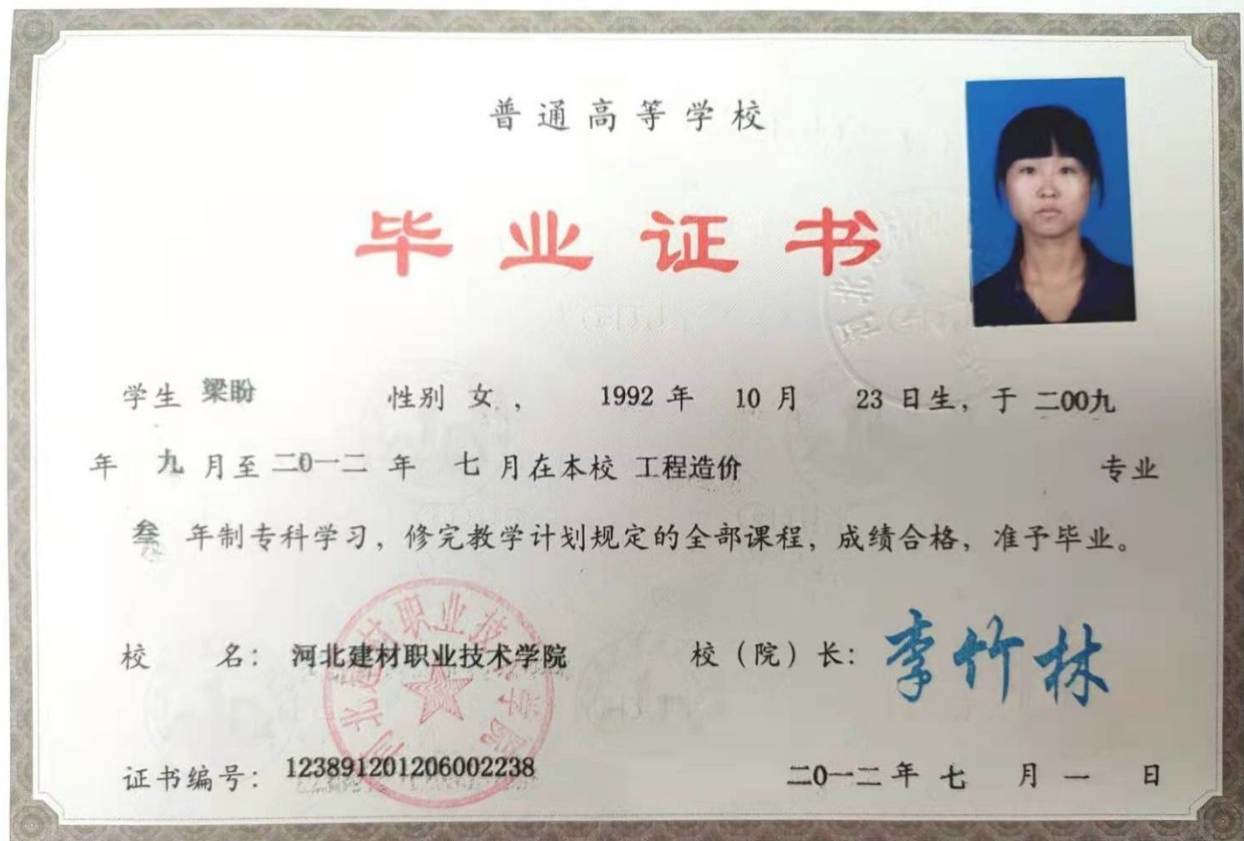 普通高等学校
毕业证书
学生 梁盼 性别 女， 1992 年 10 月 23 日生，于 二00九
年 九 月至 二0一二 年 七 月在本校 工程造价 专业
叁 年制专科学习，修完教学计划规定的全部课程，成绩合格，准予毕业。
校 名： 河北建材职业技术学院 校（院）长： 李竹林
河北建材职业技术学院
证书编号： 123891201206002238 二0一二 年 七 月 一 日